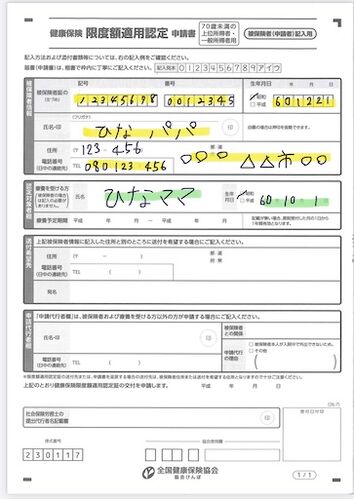 健康保険 限度額適用認定 申請書
70歳未満の
上位所得者・
一般所得者用
被保険者(申請者)記入用
記入方法および添付書類等については、右の記入例をご確認ください。
届書(申請書)は、楷書で枠内に丁寧にご記入ください。 記入見本 0123456789アイウ
被保険者情報
被保険者証の
(左づめ)
記号 番号 生年月日
12345678 0012345
昭和
平成
601221
氏名・印
(フリガナ)
ひなパパ
印
自署の場合は押印を省略できます。
住所
(〒 123-456
電話番号
(日中の連絡先)
TEL
080 123 456
○○○ △△市○○
認定対象者欄
療養を受ける方
氏名
ひなママ
生年月日
昭和
平成
60 10 1
療養予定期間 平成 年 月 ~ 平成 年 月
送付希望先
上記被保険者情報に記入した住所と別のところに送付を希望する場合にご記入ください。
住所
(〒 - )
都 道
府 県
電話番号
(日中の連絡先)
TEL ( )
宛名
申請代行者欄
「申請代行者欄」は、被保険者および療養を受ける方以外の方が申請する場合にご記入ください。
氏名・印
印
被保険者
との関係
電話番号
(日中の連絡先)
TEL ( )
申請代行
の理由
被保険者本人が入院中で外出できないため。
その他
上記のとおり健康保険限度額適用認定証の交付を申請します。 平成 年 月 日
社会保険労務士の
提出代行者名記載欄
受付日付印
様式番号
230117
協会使用欄
全国健康保険協会
協会けんぽ
1/1